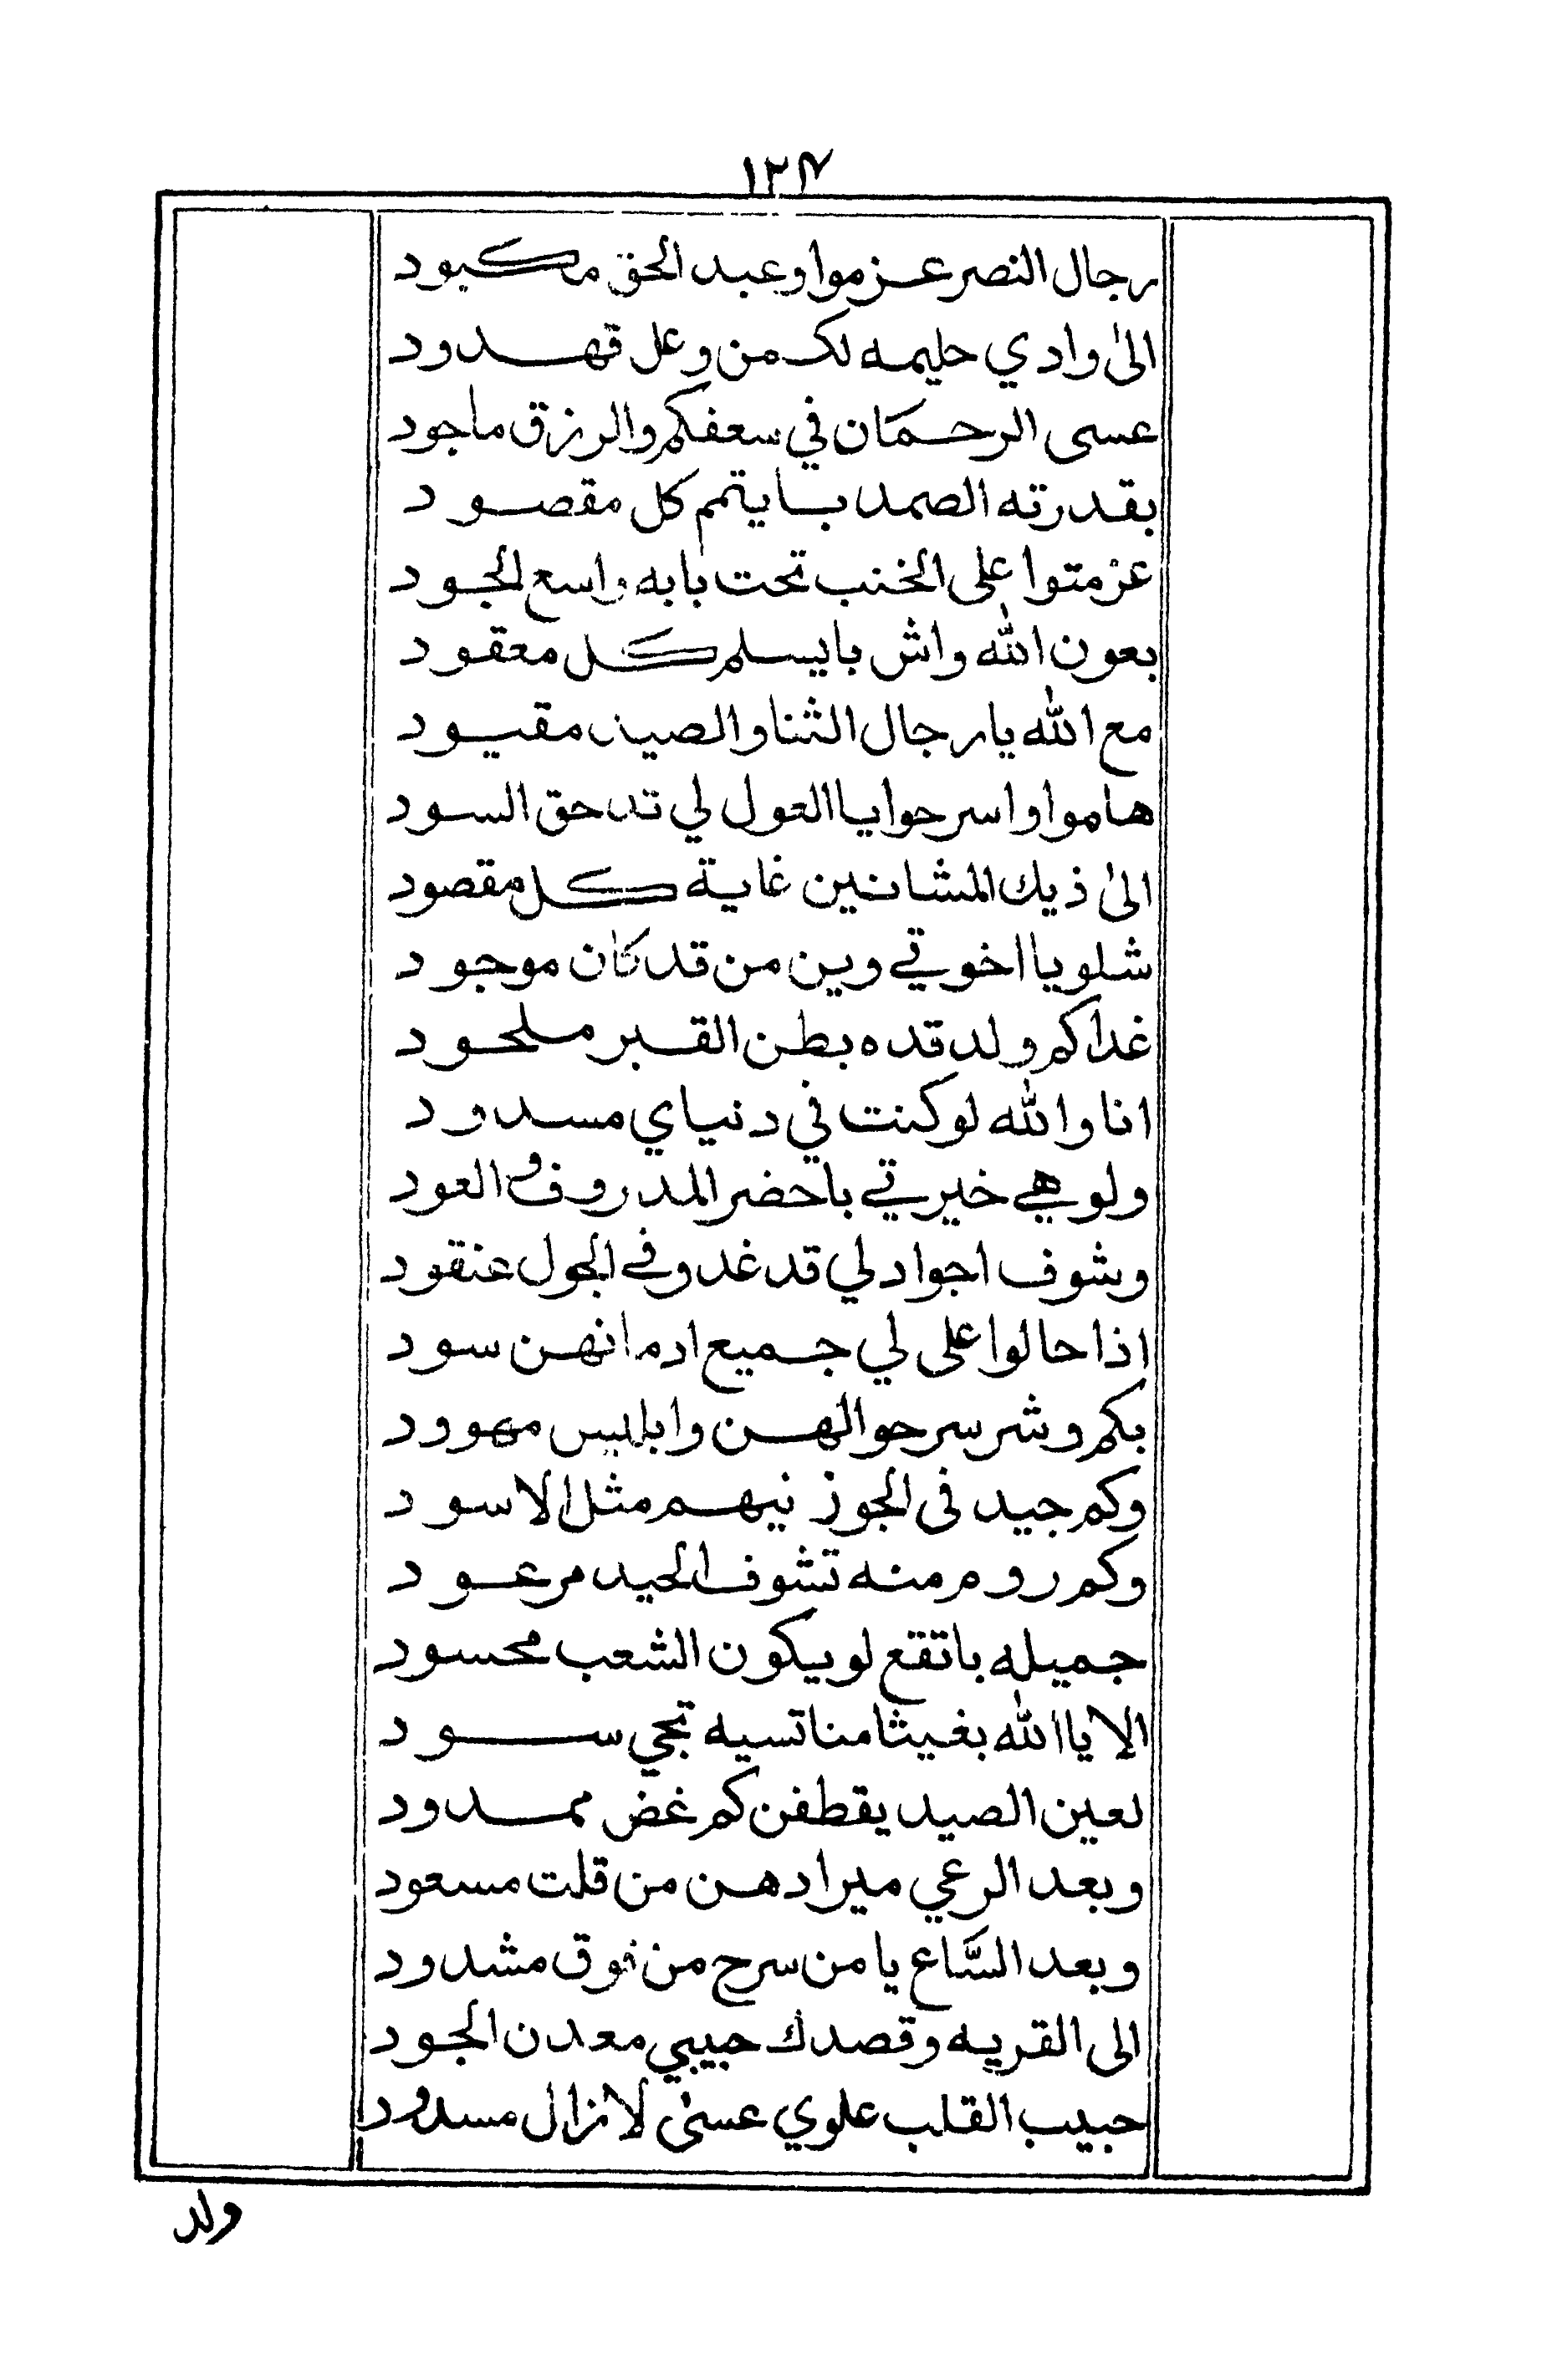 ١٢٤
رجال النصر عزموا وعبد الحق مكبود
الى وادي حليمه لك من وعل قهدود
عسى الرحمان في سعفكم والرزق ماجود
بقدرته الصمد با يتمم كل مقصود
عزمتوا على الخنب تحت بابه واسع الجود
بعون الله واش با يسلم كل معقود
مع الله يا رجال الثنا والصيد مقيود
هاموا واسرحوا يا العول لي تدحق السود
الى ذيك المشانين غاية كل مقصود
شلو يا اخوتي وين من قد كان موجود
غدا كم ولد قده بطن القبر ملحود
انا والله لو كنت في دنياي مسدود
ولو هي خيرتي باحضر المدروف والعود
وشوف اجواد لي قد غدو في الجول عنقود
اذا حالوا على لي جميع ادمانهن سود
بكم وشر سرحوا لهن وابليس مهوود
وكم جيد في الجوز نيهم مثل الاسود
وكم روم منه تشوف الحيد مرعود
جميله باتقع لو يكون الشعب محسود
الا يا الله بغيثا منا تسيه تجي سود
لعين الصيد يقطفن كم غض ممدود
وبعد الرعي ميرادهن من قلت مسعود
وبعد السَّاع يا من سرح من فوق مشدود
الى القريه وقصدك حبيبي معدن الجود
حبيب القلب علوي عسى لا نزال مسدود
ولد